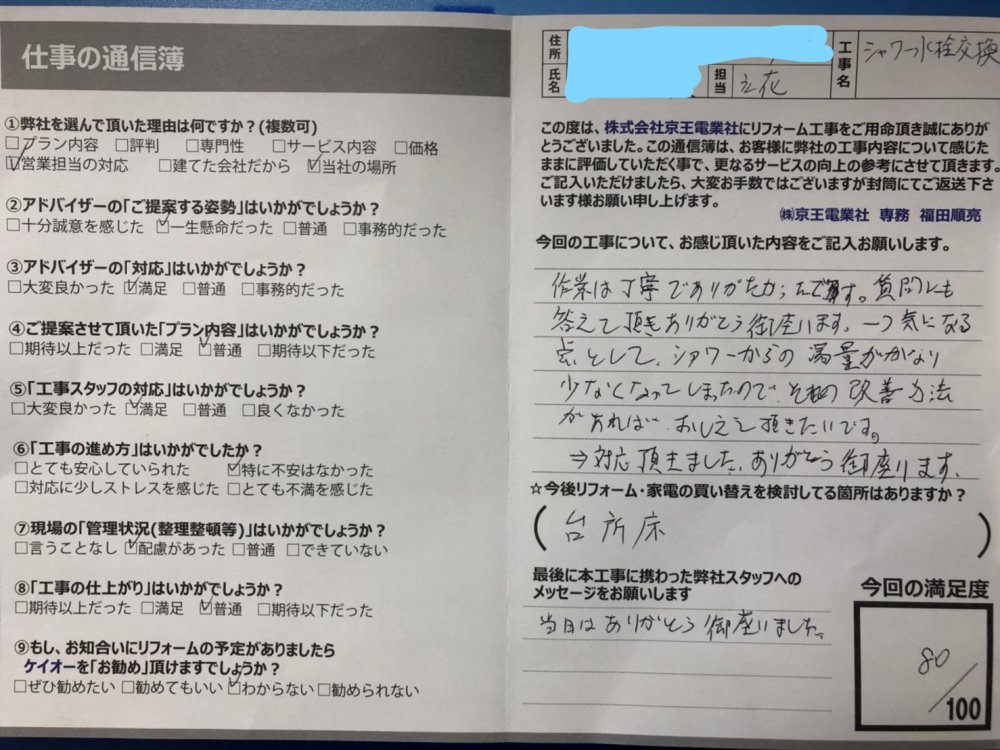 仕事の通信簿
①弊社を選んで頂いた理由は何ですか？(複数可)
□プラン内容 □評判 □専門性 □サービス内容 □価格
☑営業担当の対応 □建てた会社だから ☑当社の場所
②アドバイザーの「ご提案する姿勢」はいかがでしょうか？
□十分誠意を感じた ☑一生懸命だった □普通 □事務的だった
③アドバイザーの「対応」はいかがでしょうか？
□大変良かった ☑満足 □普通 □事務的だった
④ご提案させて頂いた「プラン内容」はいかがでしょうか？
□期待以上だった □満足 ☑普通 □期待以下だった
⑤「工事スタッフの対応」はいかがでしょうか？
□大変良かった ☑満足 □普通 □良くなかった
⑥「工事の進め方」はいかがでしたか？
□とても安心していられた ☑特に不安はなかった
□対応に少しストレスを感じた □とても不満を感じた
⑦現場の「管理状況(整理整頓等)」はいかがでしょうか？
□言うことなし ☑配慮があった □普通 □できていない
⑧「工事の仕上がり」はいかがでしょうか？
□期待以上だった □満足 ☑普通 □期待以下だった
⑨もし、お知合いにリフォームの予定がありましたら
ケイオーを「お勧め」頂けますでしょうか？
□ぜひ勧めたい □勧めてもいい ☑わからない □勧められない
住所
氏名
担当 立花
工事名 シャワー水栓交換
この度は、株式会社京王電業社にリフォーム工事をご用命頂き誠にありが
とうございました。この通信簿は、お客様に弊社の工事内容について感じた
ままに評価していただく事で、更なるサービスの向上の参考にさせて頂きます。
ご記入いただけましたら、大変お手数ではございますが封筒にてご返送下さ
います様お願い申し上げます。
㈱京王電業社 専務 福田順亮
今回の工事について、お感じ頂いた内容をご記入お願いします。
作業は丁寧でありがたかったです。質問にも
答えて頂きありがとう御座います。一つ気になる
点として、シャワーからの湯量がかなり
少なくなってしまったので、その改善方法
があれば、おしえて頂きたいです。
⇒対応頂きました。ありがとう御座ります。
☆今後リフォーム・家電の買い替えを検討してる箇所はありますか？
(台所床)
最後に本工事に携わった弊社スタッフへの
メッセージをお願いします
当日はありがとう御座いました。
今回の満足度
80/100